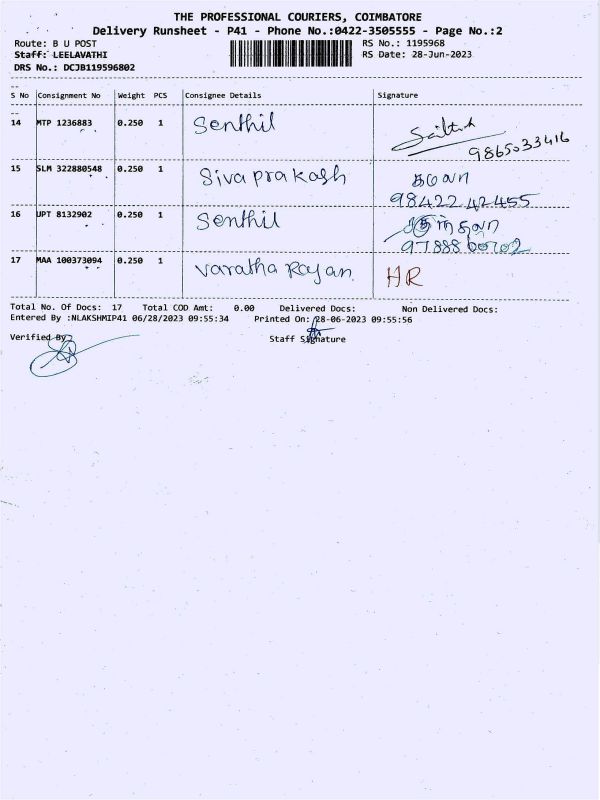 THE PROFESSIONAL COURIERS, COIMBATORE
Delivery Runsheet - P41 - Phone No.:0422-3505555 - Page No.:2
Route: B U POST RS No.: 1195968
Staff: LEELAVATHI RS Date: 28-Jun-2023
DRS No.: DCJB119596802
S No Consignment No Weight PCS Consignee Details Signature
14 MTP 1236883 0.250 1 Senthil
9865033416
15 SLM 322880548 0.250 1 Siva prakash
98422 42455
16 UPT 8132902 0.250 1 Senthil
97888 60702
17 MAA 100373094 0.250 1 Varatha Rajan HR
Total No. Of Docs: 17 Total COD Amt: 0.00 Delivered Docs: Non Delivered Docs:
Entered By :NLAKSHMIP41 06/28/2023 09:55:34 Printed On: 28-06-2023 09:55:56
Verified By Staff Signature